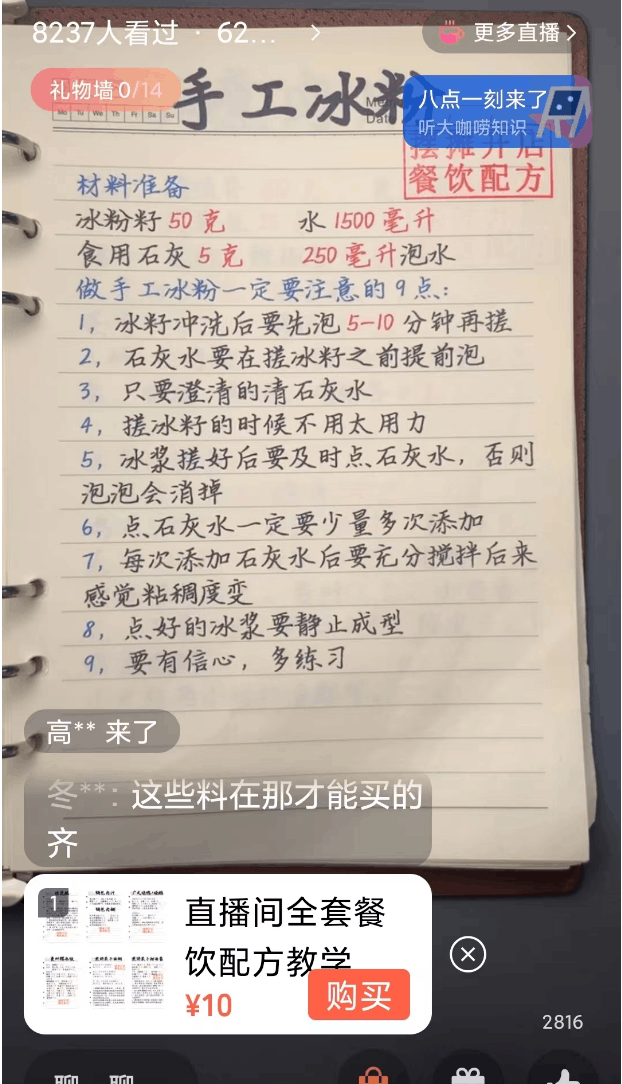 8237人看过 · 62... >
更多直播 >
礼物墙 0/14
手工冰粉
八点一刻来了
听大咖唠知识
Mo Tu We Th Fr Sa Su
Date
摆摊开店
餐饮配方
材料准备
冰粉籽 50 克 水 1500 毫升
食用石灰 5 克 250 毫升泡水
做手工冰粉一定要注意的 9 点:
1, 冰籽冲洗后要先泡 5-10 分钟再搓
2, 石灰水要在搓冰籽之前提前泡
3, 只要澄清的清石灰水
4, 搓冰籽的时候不用太用力
5, 冰浆搓好后要及时点石灰水, 否则
泡泡会消掉
6, 点石灰水一定要少量多次添加
7, 每次添加石灰水后要充分搅拌后来
感觉粘稠度变
8, 点好的冰浆要静止成型
9, 要有信心, 多练习
高** 来了
冬**: 这些料在那才能买的
齐
1
直播间全套餐
饮配方教学
¥10
购买
2816
聊 聊